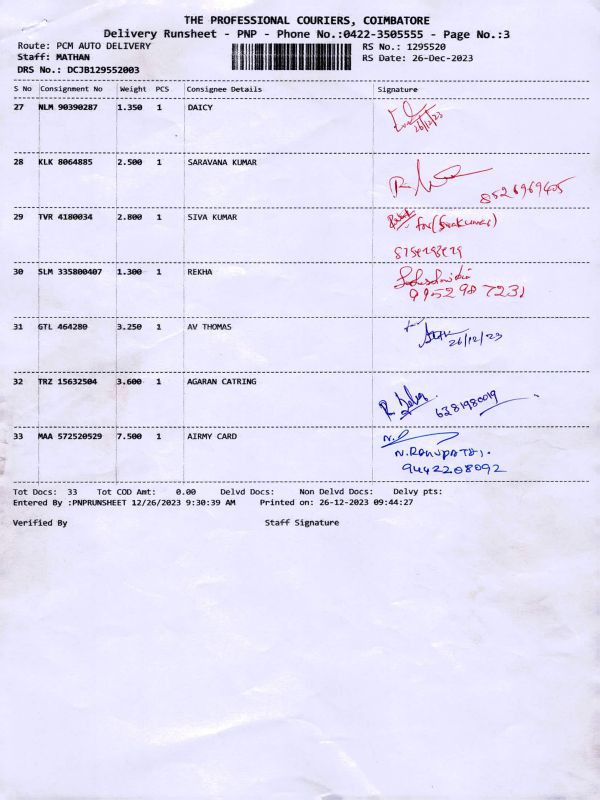 THE PROFESSIONAL COURIERS, COIMBATORE
Delivery Runsheet - PNP - Phone No.:0422-3505555 - Page No.:3
Route: PCM AUTO DELIVERY RS No.: 1295520
Staff: MATHAN RS Date: 26-Dec-2023
DRS No.: DCJB129552003
S No Consignment No Weight PCS Consignee Details Signature
27 NLM 90390287 1.350 1 DAICY
26/12/23
28 KLK 8064885 2.500 1 SARAVANA KUMAR
8526969405
29 TVR 4180034 2.800 1 SIVA KUMAR
for
30 SLM 335800407 1.300 1 REKHA
9952987231
31 GTL 464280 3.250 1 AV THOMAS
26/12/23
32 TRZ 15632504 3.600 1 AGARAN CATRING
6381980019
33 MAA 572520529 7.500 1 AIRMY CARD
9442208092
Tot Docs: 33 Tot COD Amt: 0.00 Delvd Docs: Non Delvd Docs: Delvy pts:
Entered By :PNPRUNSHEET 12/26/2023 9:30:39 AM Printed on: 26-12-2023 09:44:27
Verified By Staff Signature